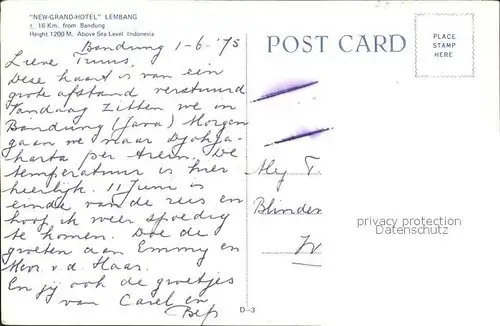 "NEW-GRAND-HOTEL" LEMBANG
± 16 Km. from Bandung
Height 1200 M. Above Sea Level Indonesia
POST CARD
PLACE
STAMP
HERE
Bandung 1-6-'75
Lieve Truus,
Deze kaart is van een
grote afstand verstuurd
Vandaag zitten we in
Bandung (Java) Morgen
gaan we naar Djokja-
karta per trein. De
temperatuur is hier
heerlijk. 11 Juni is
einde van de reis en
hoop ik weer spoedig
te komen. Doe de
groeten aan Emmy en
Mevr. v.d. Haar.
En jij ook de groetjes
van Carel en
Bep
Mej T
Blinden
D-3
privacy protection
Datenschutz